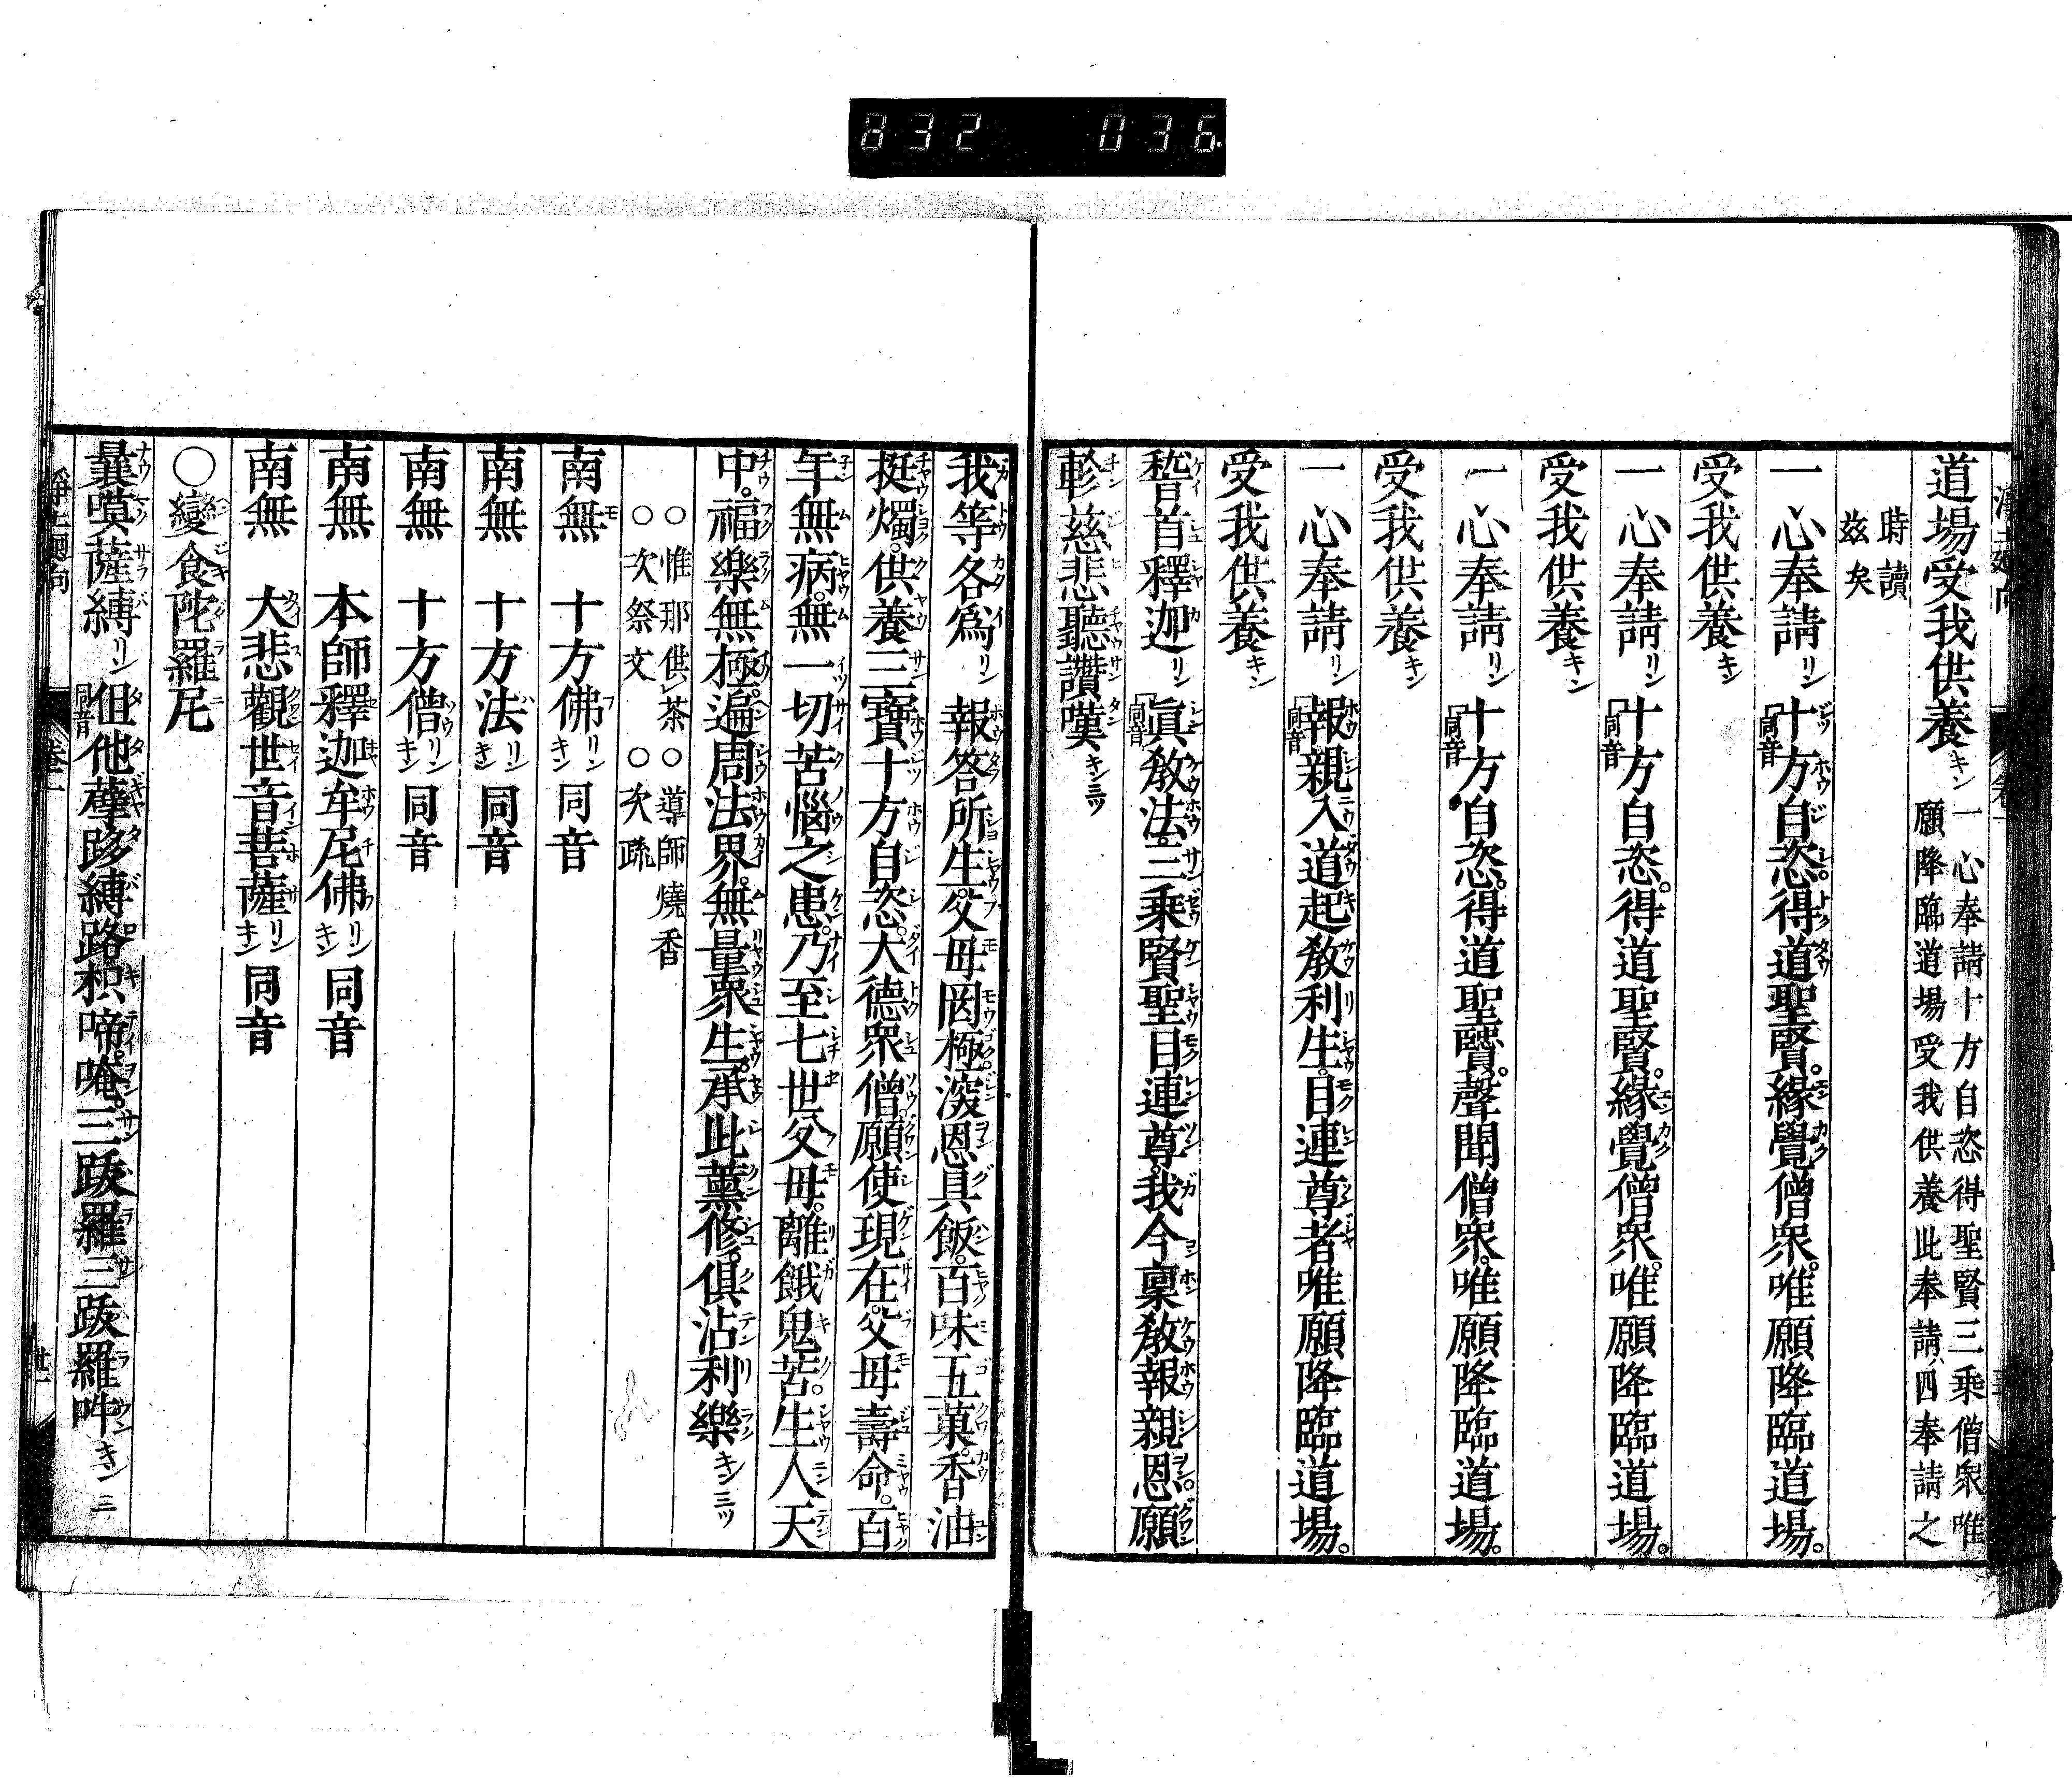 832 036
道場受我供養キン 一心奉請十方自恣得聖賢三乘僧衆唯
願降臨道場受我供養此奉請四奉請之
時讀
茲矣
一心奉請リン 十方自恣。得道聖賢。緣覺僧衆。唯願降臨道場。
受我供養キン
一心奉請リン 同音 十方自恣。得道聖賢。緣覺僧衆。唯願降臨道場。
受我供養キン
一心奉請リン 同音 十方自恣。得道聖賢。聲聞僧衆。唯願降臨道場。
受我供養キン
一心奉請リン 同音 報親入道起教利生。目連尊者唯願降臨道場。
受我供養キン
稽首釋迦リン 同音 眞教法。三乘賢聖目連尊。我今稟教報親恩。願
軫慈悲聽讚嘆キン三ツ
我等各爲リン 報答所生。父母罔極。深恩具飯。百味五菓。香油
挺燭。供養三寶十方自恣。大德衆僧。願使現在。父母壽命。百
年無病。無一切苦惱之患。乃至七世父母。離餓鬼苦。生人天
中。福樂無極。遍周法界。無量衆生。承此薰修。俱沾利樂キン三ツ
○惟那供茶○導師燒香
○次祭文 ○次疏
南無 十方佛リンキン 同音
南無 十方法リンキン 同音
南無 十方僧リンキン 同音
南無 本師釋迦牟尼佛リンキン 同音
南無 大悲觀世音菩薩リンキン 同音
○變食陀羅尼
曩嘆薩縛リン 同音 怛他孽哆縛路枳啼。唵。三跋羅三跋羅吽キン三
淨土廻向 卷一